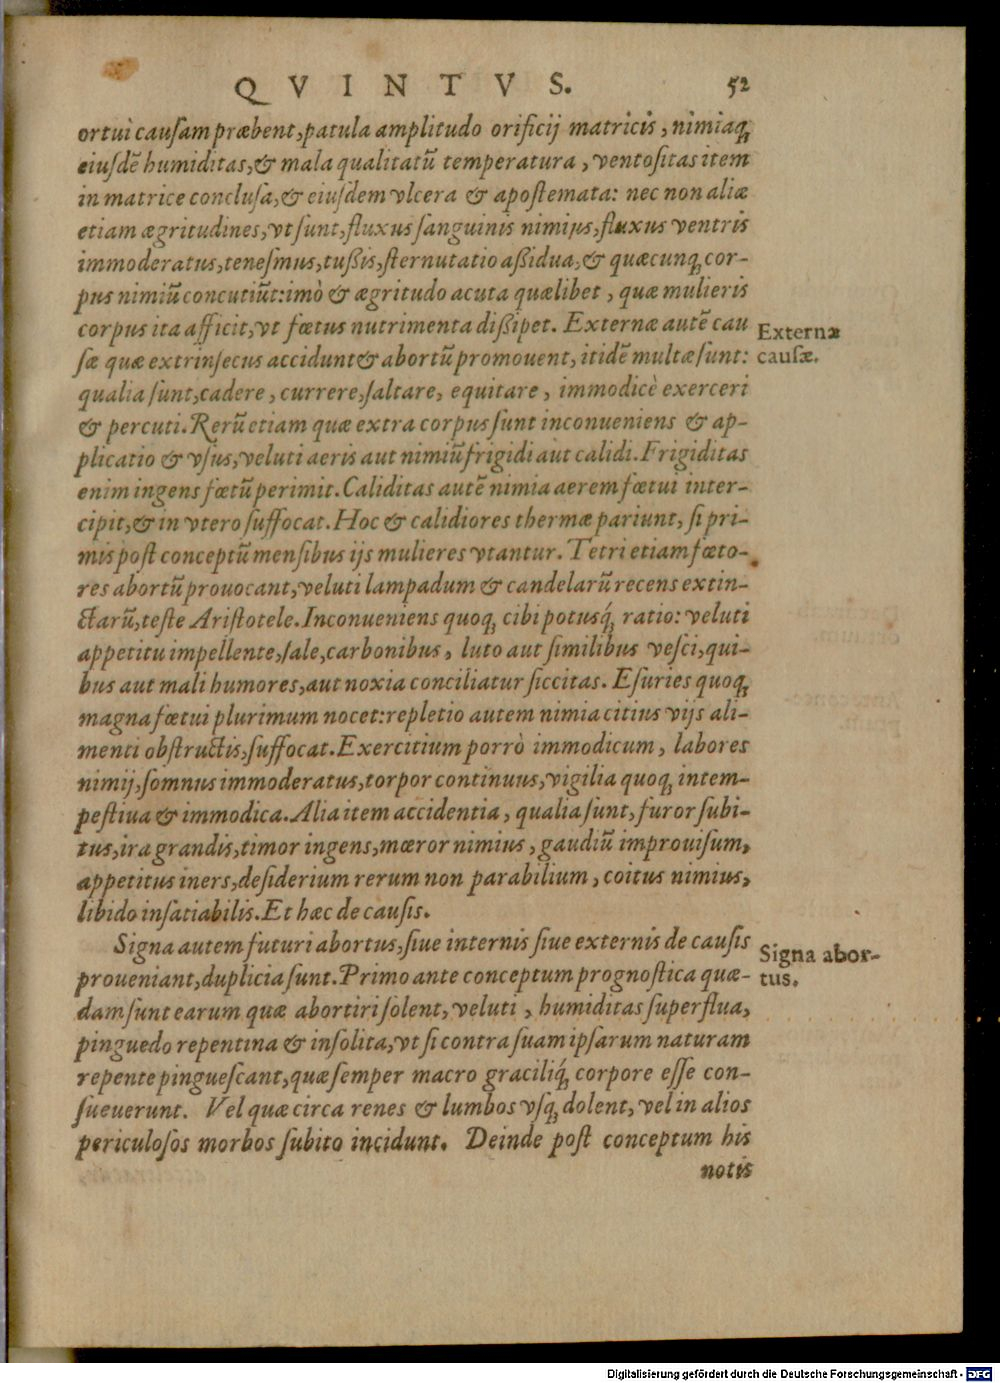 QVINTVS. 52
ortui causam præbent, patula amplitudo orificij matricis, nimiaq́;
eiusdẽ humiditas, & mala qualitatũ temperatura, ventositas item
in matrice conclusa, & eiusdem vlcera & apostemata: nec non aliæ
etiam ægritudines, vt sunt, fluxus sanguinis nimius, fluxus ventris
immoderatus, tenesmus, tußis, sternutatio aßidua, & quæcunq; cor-
pus nimiũ concutiũt: imò & ægritudo acuta quælibet, quæ mulieris
corpus ita afficit, vt fœtus nutrimenta dißipet. Externæ autẽ cau
Externæ
sæ quæ extrinsecus accidunt & abortũ promouent, itidẽ multæ sunt:
causæ.
qualia sunt, cadere, currere, saltare, equitare, immodicè exerceri
& percuti. Rerũ etiam quæ extra corpus sunt inconueniens & ap-
plicatio & vsus, veluti aeris aut nimiũ frigidi aut calidi. Frigiditas
enim ingens fœtũ perimit. Caliditas autẽ nimia aerem fœtui inter-
cipit, & in vtero suffocat. Hoc & calidiores thermæ pariunt, si pri-
mis post conceptũ mensibus ijs mulieres vtantur. Tetri etiam fœto-
res abortũ prouocant, veluti lampadum & candelarũ recens extin-
ctarũ, teste Aristotele. Inconueniens quoq; cibi potusq́; ratio: veluti
appetitu impellente, sale, carbonibus, luto aut similibus vesci, qui-
bus aut mali humores, aut noxia conciliatur siccitas. Esuries quoq;
magna fœtui plurimum nocet: repletio autem nimia citius vijs ali-
menti obstructis, suffocat. Exercitium porrò immodicum, labores
nimij, somnus immoderatus, torpor continuus, vigilia quoq; intem-
pestiua & immodica. Alia item accidentia, qualia sunt, furor subi-
tus, ira grandis, timor ingens, mœror nimius, gaudiũ improuisum,
appetitus iners, desiderium rerum non parabilium, coitus nimius,
libido insatiabilis. Et hæc de causis.
Signa autem futuri abortus, siue internis siue externis de causis
Signa abor-
proueniant, duplicia sunt. Primo ante conceptum prognostica quæ-
tus.
dam sunt earum quæ abortiri solent, veluti, humiditas superflua,
pinguedo repentina & insolita, vt si contra suam ipsarum naturam
repente pinguescant, quæ semper macro graciliq́; corpore esse con-
sueuerunt. Vel quæ circa renes & lumbos vsq; dolent, vel in alios
periculosos morbos subito incidunt. Deinde post conceptum his
notis
Digitalisierung gefördert durch die Deutsche Forschungsgemeinschaft - DFG